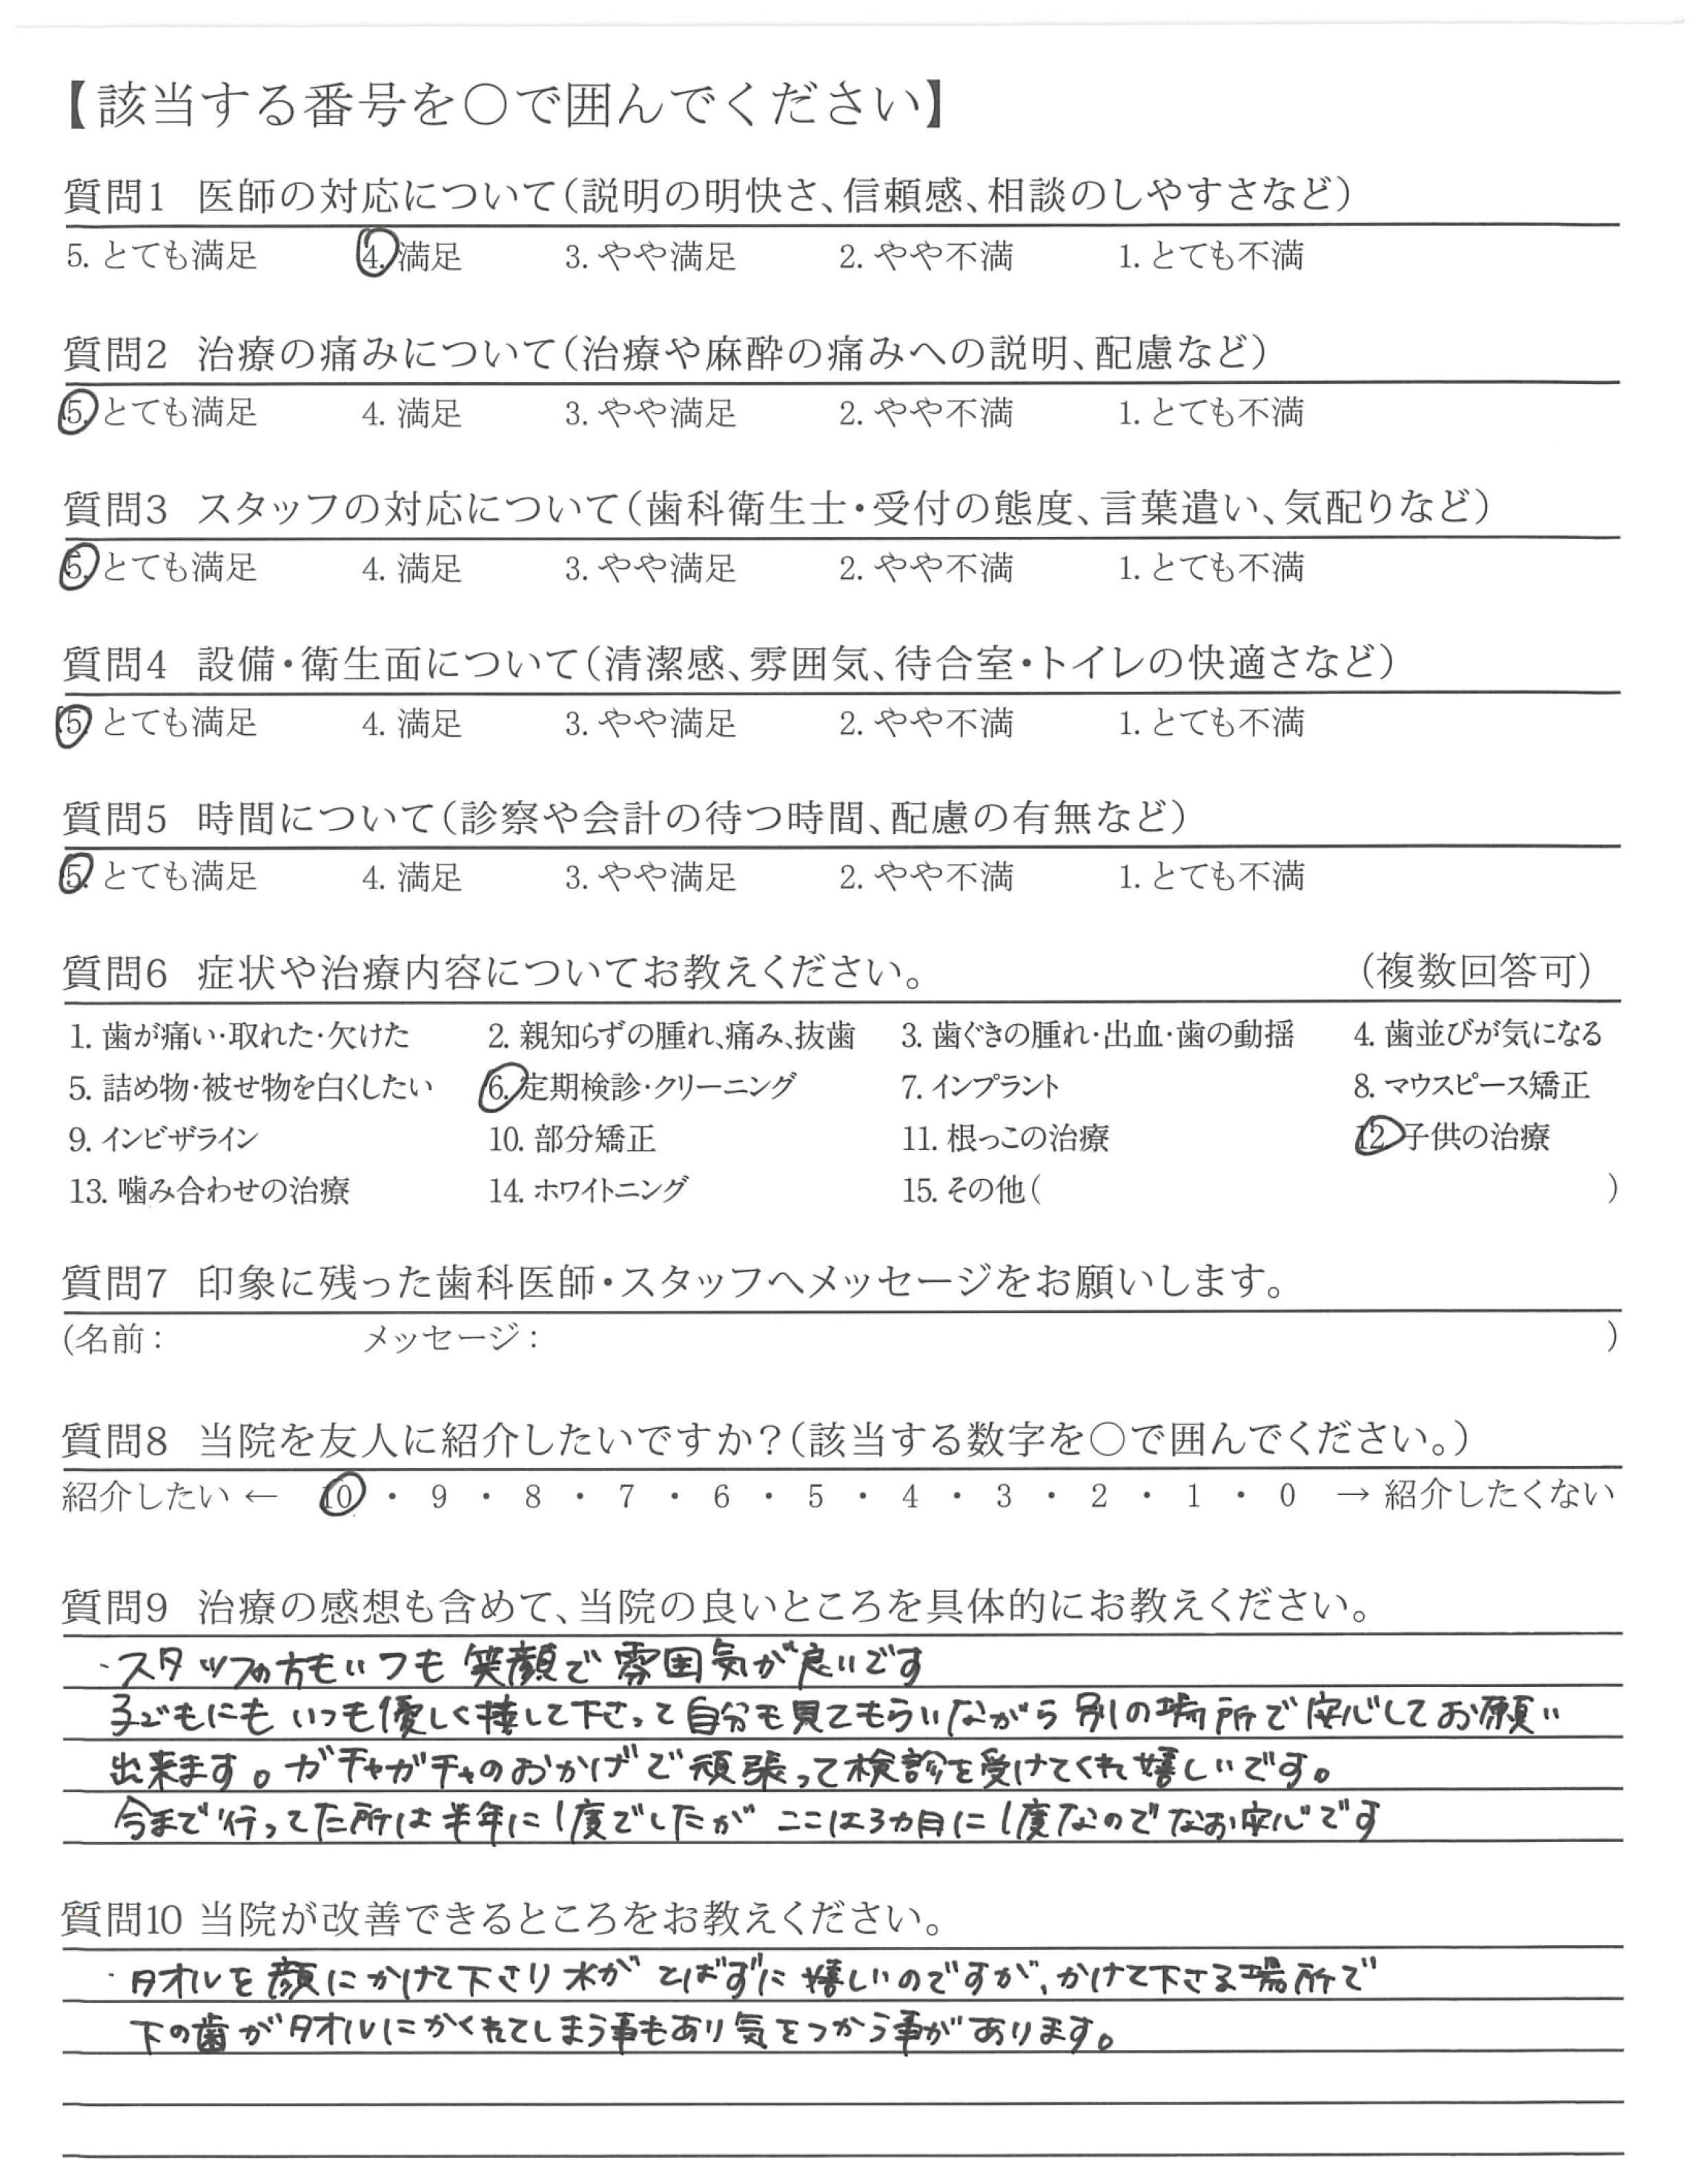 【該当する番号を○で囲んでください】
質問1 医師の対応について(説明の明快さ、信頼感、相談のしやすさなど)
5. とても満足 4. 満足 3. やや満足 2. やや不満 1. とても不満
質問2 治療の痛みについて(治療や麻酔の痛みへの説明、配慮など)
5. とても満足 4. 満足 3. やや満足 2. やや不満 1. とても不満
質問3 スタッフの対応について(歯科衛生士・受付の態度、言葉遣い、気配りなど)
5. とても満足 4. 満足 3. やや満足 2. やや不満 1. とても不満
質問4 設備・衛生面について(清潔感、雰囲気、待合室・トイレの快適さなど)
5. とても満足 4. 満足 3. やや満足 2. やや不満 1. とても不満
質問5 時間について(診察や会計の待つ時間、配慮の有無など)
5. とても満足 4. 満足 3. やや満足 2. やや不満 1. とても不満
質問6 症状や治療内容についてお教えください。 (複数回答可)
1. 歯が痛い・取れた・欠けた 2. 親知らずの腫れ、痛み、抜歯 3. 歯ぐきの腫れ・出血・歯の動揺 4. 歯並びが気になる
5. 詰め物・被せ物を白くしたい 6. 定期検診・クリーニング 7. インプラント 8. マウスピース矯正
9. インビザライン 10. 部分矯正 11. 根っこの治療 12. 子供の治療
13. 噛み合わせの治療 14. ホワイトニング 15. その他( )
質問7 印象に残った歯科医師・スタッフへメッセージをお願いします。
(名前: メッセージ: )
質問8 当院を友人に紹介したいですか?(該当する数字を○で囲んでください。)
紹介したい ← 10 ・ 9 ・ 8 ・ 7 ・ 6 ・ 5 ・ 4 ・ 3 ・ 2 ・ 1 ・ 0 → 紹介したくない
質問9 治療の感想も含めて、当院の良いところを具体的にお教えください。
・スタッフの方もいつも笑顔で雰囲気が良いです
子どもにもいつも優しく接して下さって自分も見てもらいながら別の場所で安心してお願い
出来ます。ガチャガチャのおかげで頑張って検診を受けてくれ嬉しいです。
今まで行ってた所は半年に1度でしたが ここは3カ月に1度なのでなお安心です
質問10 当院が改善できるところをお教えください。
・タオルを顔にかけて下さり水がとばずに嬉しいのですが、かけて下さる場所で
下の歯がタオルにかくれてしまう事もあり気をつかう事があります。